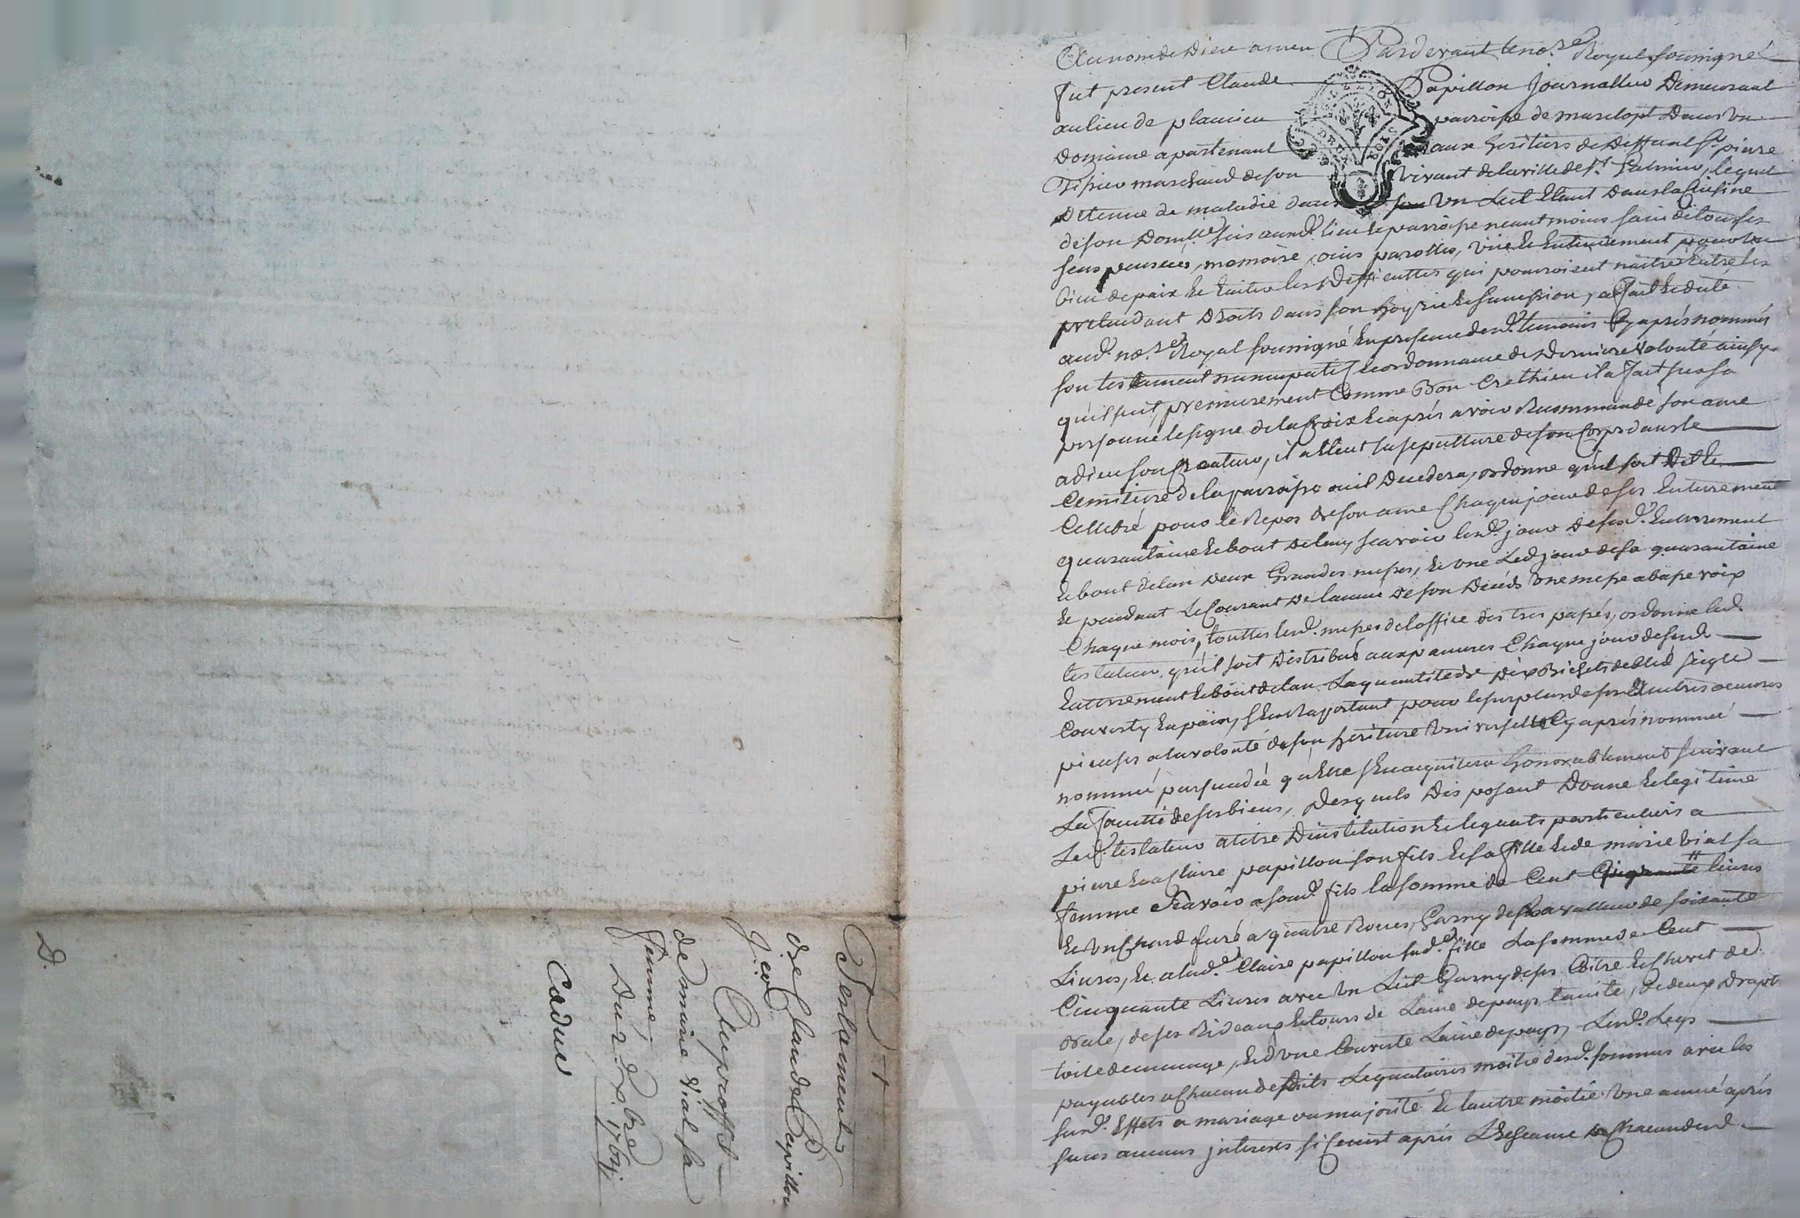 Au nom de Dieu amen Pardevant le no.re Royal soussigné
fut present Claude Papillon Journallier Demeurant
au lieu de planieu parroisse de Dans un
Domaine apartenant aux heritiers de Deffunt Sr. pierre
marchand de son vivant de la ville de St. Galmier, lequel
Detenue de maladie dans un Lict Etant Dans la Cuisine
de son Domlle. sis aud. lieu et parroisse neantmoins sain de tous ses
sens pensées, memoire, ouis parolles, vüe et Entendement pour le
bien de paix et Eviter les Difficultes qui pourroient naitre Entre les
pretendant Droits dans son hoyrie et succession, a fait et dicté
aud. no.re Royal soussigné En presence des temoins Cy après nommés
son testament nuncupatif et ordonnance de Derniere volonté ainsy
qu'il suit, premierement Comme Bon Crethien il a fait sur sa
personne le signe de la Croix et après avoir Recommandé son ame
a dieu son Createur, il a Eleut sa sepulture de son Corps dans le
Cemitiere de la parroisse ou il Decedera, ordonne qu'il soit Dit et
Cellebré pour le Repos de son ame Chaque jour de ses Enterrement
quarantaine et bout de l'an, scavoir lesd. jour de sesd. Enterrement
et bout de lan Deux Grandes messes, et une Led. jour de sa quarantaine
et pendant Le Courant De lannée de son Décés une messe a basse voix
Chaque mois, touttes lesd. messes de l'office des trepassés, ordonne led.
testateur qu'il soit Distribué aux pauvres Chaque jour de sesd.
Enterrement et bout de lan La quantité de Dix Bichets de bled seigle
Converty En pain, s'En Raportant pour le surplus de ses autres oeuvres
pieuses a la volonté de son heritiere universelle Cy après nommée
nommé persuadé qu'Elle s'En acquittera honorablement suivant
La faculté de ses biens, Desquels Disposant Donne et legitime
Led. testateur a titre D'institution et leguats particuliers a
pierre et a Claire papillon son fils et sa fille et de marie vial sa
femme scavoir a sond. fils la somme de Cent Cinquante livres
et un Char ferré a quatre Roues, Garny de sa valleur de soixante
Livres, et a lad. Claire papillon sad. fille La somme de Cent
Cinquante Livres avec un Lict Garny de ses Coitre et Chevet de
de ses Rideaux et tours de Laine de pays tainte, de deux Draps
toile de menage, et d'une Couverte Laine de pays, Lesd. Legs
payables a Chacun desdits Leguataires moitié desd. sommes avec les
susd. Effets a mariage ou majorité et l'autre moitié une année après
sans aucuns jnterets si Ce n'est après L'Echeance de Chacun desd.
Testament
de Claude Papillon
Au proffit
de marie Vial sa
femme
Du 2 xbre 176
Cadue